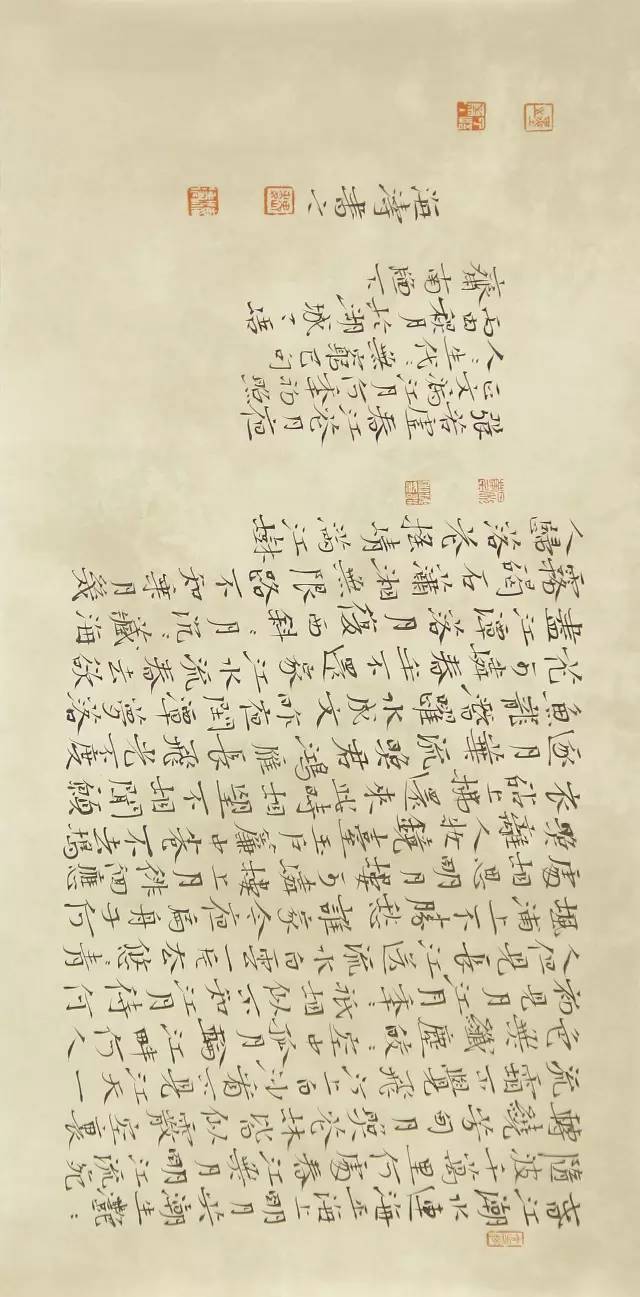 春江潮水連海平海上明月共潮生灩灩
隨波千萬里何處春江無月明江流宛
轉繞芳甸月照花林皆似霰空裏
流霜不覺飛汀上白沙看不見江天一
色無纖塵皎皎空中孤月輪江畔何人
初見月江月年年祇相似不知江月待何
人但見長江送流水白雲一片去悠悠青
楓浦上不勝愁誰家今夜扁舟子何
處相思明月樓可憐樓上月徘徊應
照離人妝鏡臺玉戶簾中卷不去搗
衣砧上拂還來此時相望不相聞願
逐月華流照君鴻雁長飛光不度
魚龍潛躍水成文昨夜閒潭夢落
花可憐春半不還家江水流春去欲
盡江潭落月復西斜斜月沉沉藏海
霧碣石瀟湘無限路不知乘月幾
人歸落花搖情滿江樹
張若虛春江花月夜
正文漏江月何年初照
人人生代代無窮已句
丙申秋月於湖城之
齋南牖下
海濤書